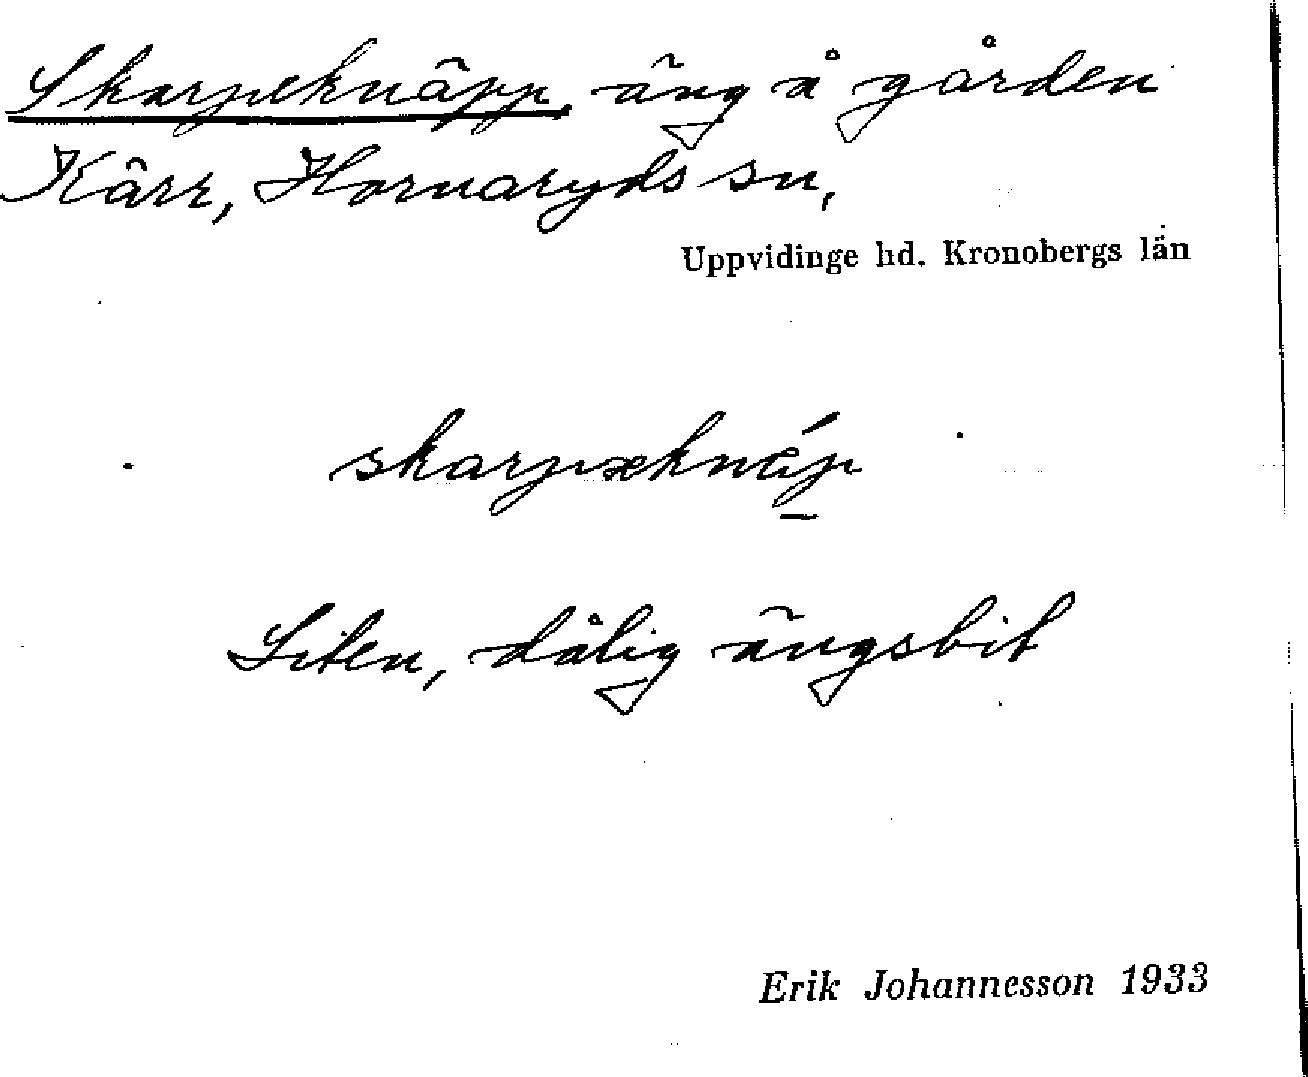 Skarpeknäpp, äng å gården
Kärr, Hornaryds sn,
Uppvidinge hd. Kronobergs län
skarpækná̱p
Liten, dålig ängsbit
Erik Johannesson 1933